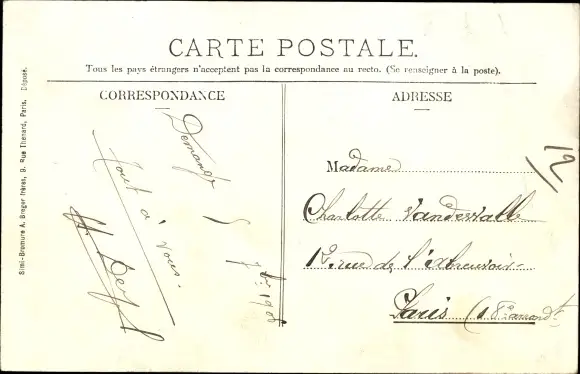 CARTE POSTALE.
Tous les pays étrangers n'acceptent pas la correspondance au recto. (Se renseigner à la poste).
CORRESPONDANCE
ADRESSE
Simi-Bromure A. Breger frères, 9, Rue Thénard, Paris. Déposé.
5 7bre 1908
Tout à vous.
12
Madame
Charlotte Vandewalle
12, rue de l'Abreuvoir
Paris (18e arrondt